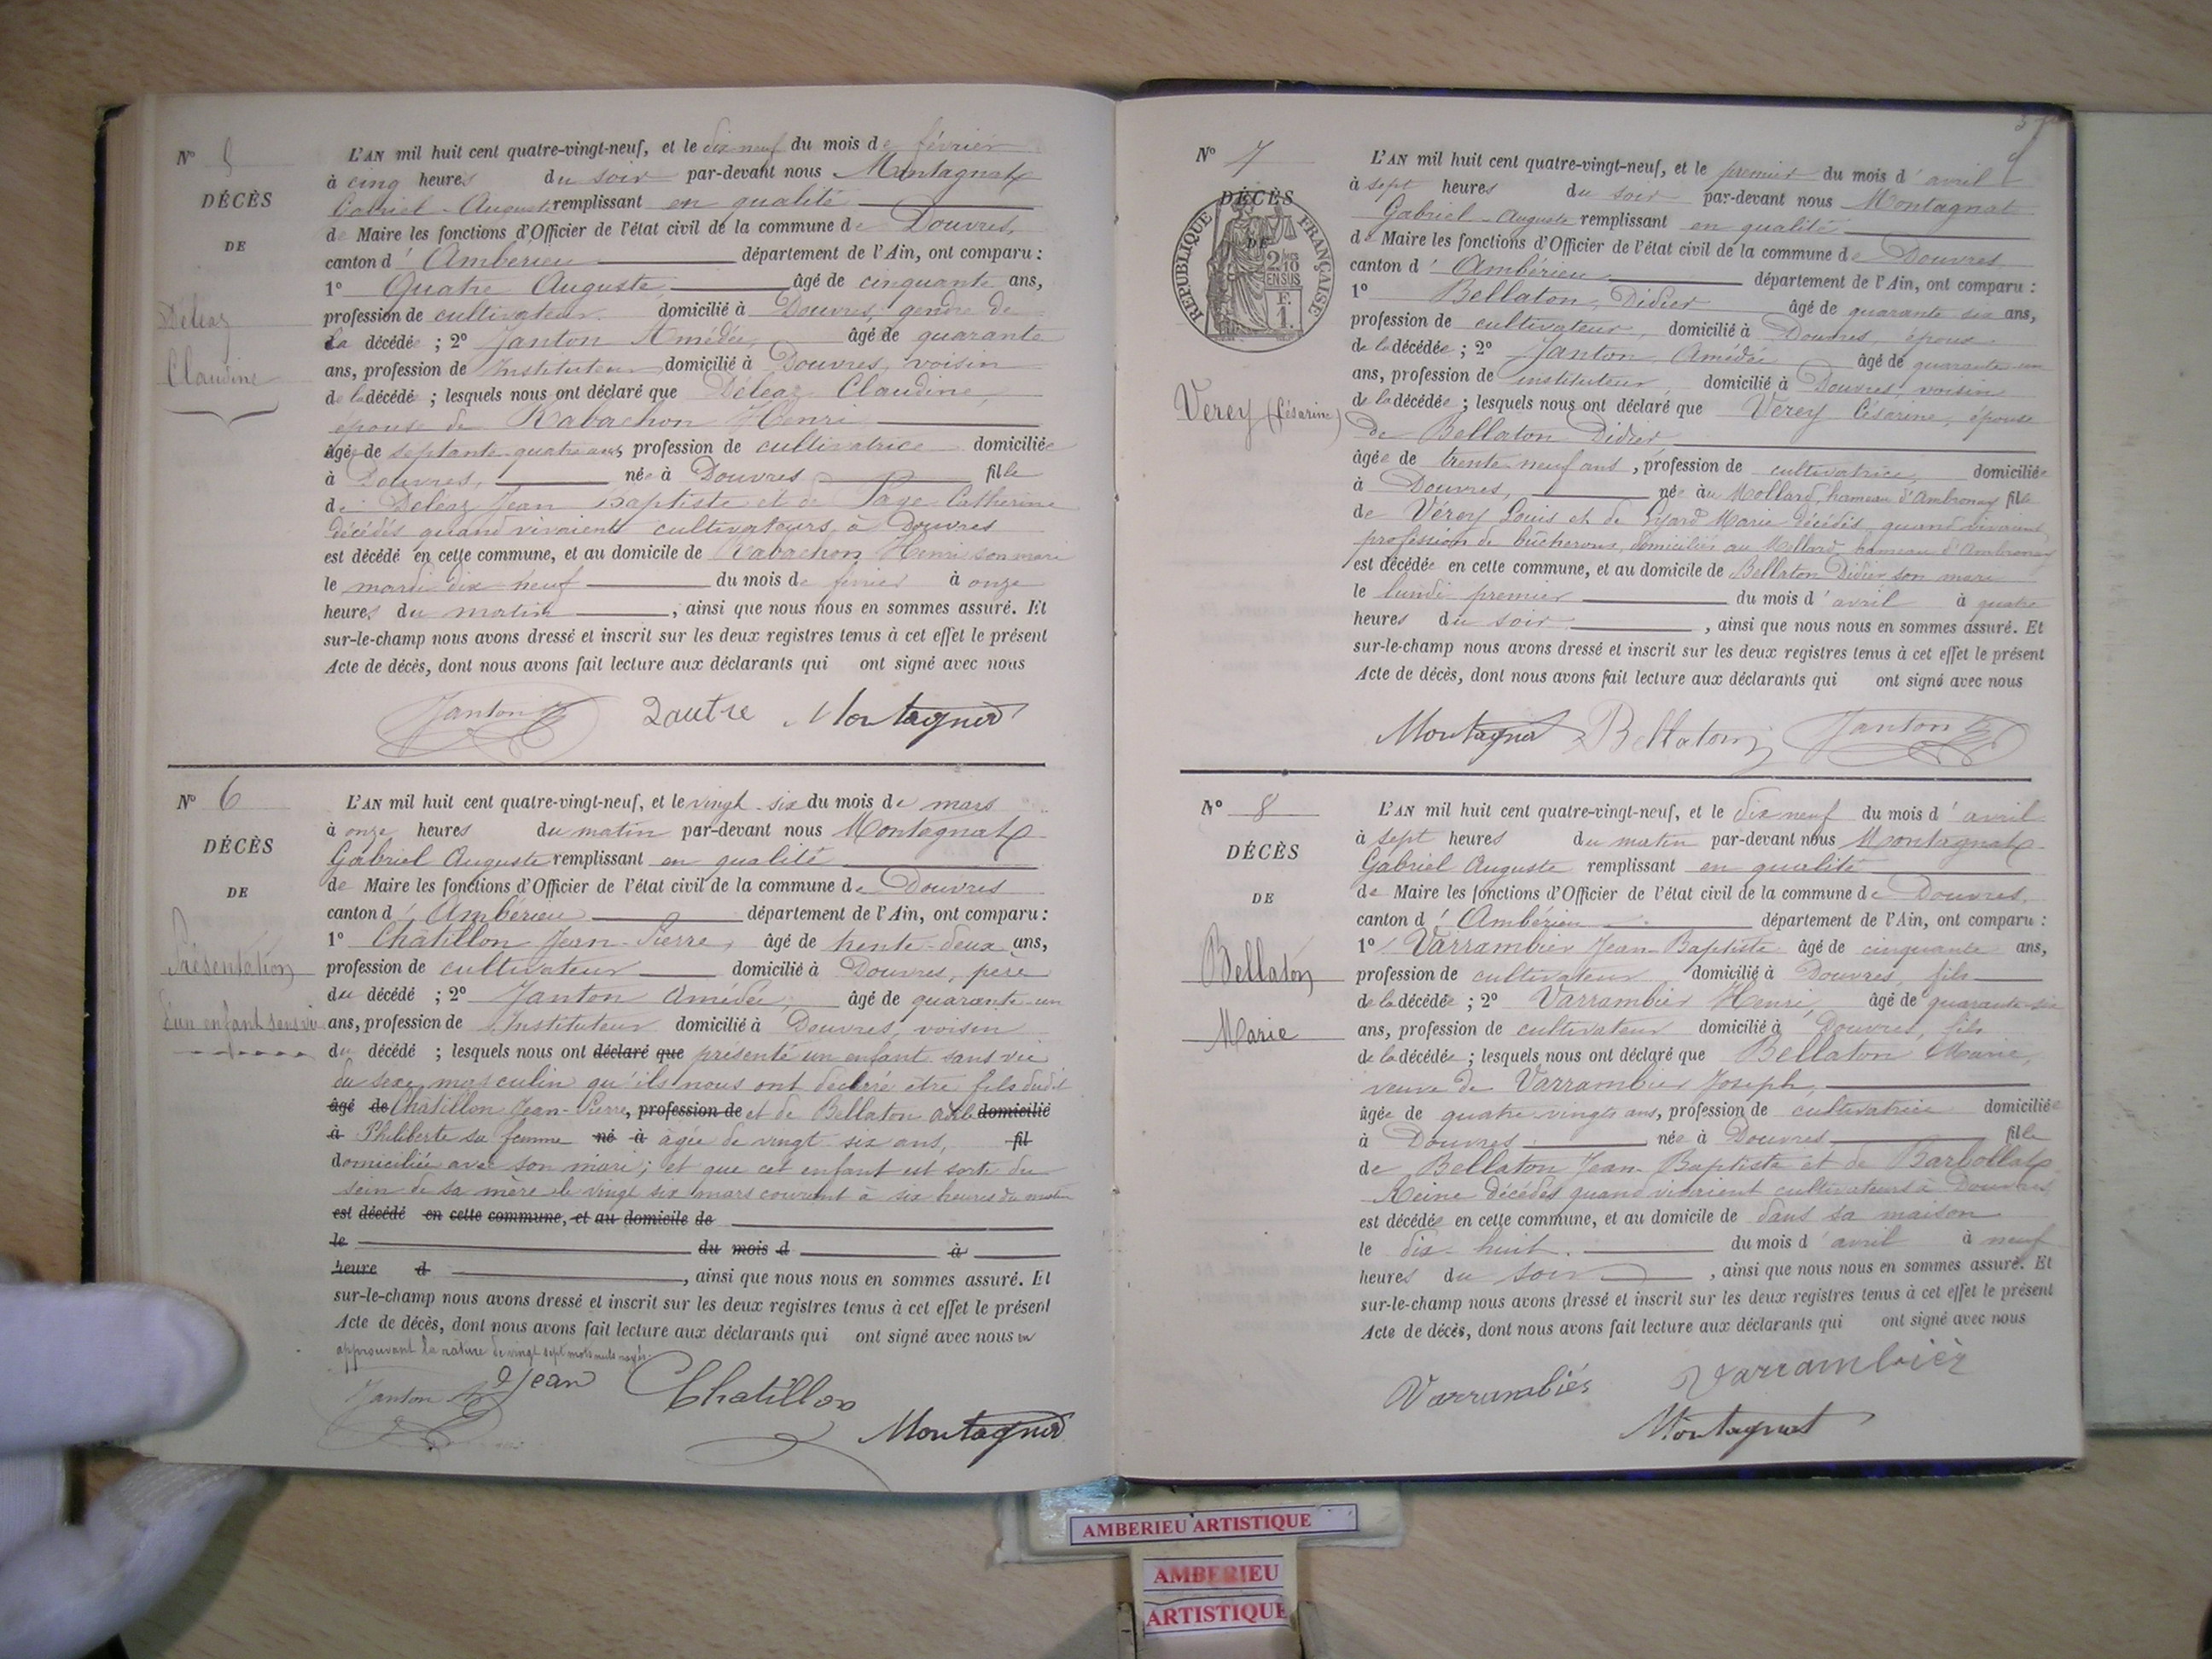 N° 5
DÉCÈS
DE
Deléaz
Claudine
L'AN mil huit cent quatre-vingt-neuf, et le dix-neuf du mois de février
à cinq heures du soir par-devant nous Montagnat
Gabriel-Auguste remplissant en qualité
de Maire les fonctions d'Officier de l'état civil de la commune de Douvres,
canton d'Ambérieu département de l'Ain, ont comparu :
1° Quatre Auguste âgé de cinquante ans,
profession de cultivateur domicilié à Douvres, gendre de
la décédée ; 2° Janton Amédée, âgé de quarante
ans, profession de Instituteur domicilié à Douvres, voisin
de la décédé ; lesquels nous ont déclaré que Deléaz Claudine,
épouse de Rabachon Henri
âgée de septante-quatre ans, profession de cultivatrice domiciliée
à Douvres, née à Douvres fille
de Deléaz Jean Baptiste et de Page Catherine
décédés quand vivaient cultivateurs à Douvres
est décédé en cette commune, et au domicile de Rabachon Henri son mari
le mardi dix-neuf du mois de février à onze
heures du matin, ainsi que nous nous en sommes assuré. Et
sur-le-champ nous avons dressé et inscrit sur les deux registres tenus à cet effet le présent
Acte de décès, dont nous avons fait lecture aux déclarants qui ont signé avec nous
Janton Qautre Montagnat
N° 6
DÉCÈS
DE
Présentation
d'un enfant sans vie
L'AN mil huit cent quatre-vingt-neuf, et le vingt-six du mois de mars
à onze heures du matin par-devant nous Montagnat
Gabriel Auguste remplissant en qualité
de Maire les fonctions d'Officier de l'état civil de la commune de Douvres
canton d'Ambérieu département de l'Ain, ont comparu :
1° Châtillon Jean-Pierre, âgé de trente-deux ans,
profession de cultivateur domicilié à Douvres, père
du décédé ; 2° Janton Amédée, âgé de quarante-un
ans, profession de Instituteur domicilié à Douvres, voisin
du décédé ; lesquels nous ont déclaré que présenté un enfant sans vie
du sexe masculin qu'ils nous ont déclaré être fils dudit
âgé de Châtillon Jean-Pierre, profession de et de Bellaton domicilié
à Philiberte sa femme né à âgée de vingt-six ans, fil
domiciliée avec son mari ; et que cet enfant est sorti du
sein de sa mère le vingt six mars courant à six heures du matin
est décédé en cette commune, et au domicile de
le du mois d à
heure d, ainsi que nous nous en sommes assuré. Et
sur-le-champ nous avons dressé et inscrit sur les deux registres tenus à cet effet le présent
Acte de décès, dont nous avons fait lecture aux déclarants qui ont signé avec nous en
approuvant la rature de vingt sept mots nuls rayés.
Janton Jean Chatillon
Montagnat
N° 7
DÉCÈS
DE
RÉPUBLIQUE FRANÇAISE
2/10
EN SUS
F.
1.
Verey (Césarine)
L'AN mil huit cent quatre-vingt-neuf, et le premier du mois d'avril
à sept heures du soir par-devant nous Montagnat
Gabriel-Auguste remplissant en qualité
de Maire les fonctions d'Officier de l'état civil de la commune de Douvres
canton d'Ambérieu département de l'Ain, ont comparu :
1° Bellaton, Didier âgé de quarante six ans,
profession de cultivateur, domicilié à Douvres, époux
de la décédée ; 2° Janton, Amédée âgé de quarante-un
ans, profession de instituteur, domicilié à Douvres, voisin
de la décédée ; lesquels nous ont déclaré que Verey Césarine, épouse
de Bellaton Didier
âgée de trente-neuf ans, profession de cultivatrice, domiciliée
à Douvres, née au Mollard, hameau d'Ambronay fille
de Vérey Louis et de Marie décédés, quand vivaient
profession de bûcherons, domiciliés au Mollard, hameau d'Ambronay
est décédée en cette commune, et au domicile de Bellaton Didier son mari
le lundi premier du mois d'avril à quatre
heures du soir, ainsi que nous nous en sommes assuré. Et
sur-le-champ nous avons dressé et inscrit sur les deux registres tenus à cet effet le présent
Acte de décès, dont nous avons fait lecture aux déclarants qui ont signé avec nous
Montagnat Bellaton Janton
N° 8
DÉCÈS
DE
Bellaton
Marie
L'AN mil huit cent quatre-vingt-neuf, et le dix neuf du mois d'avril
à sept heures du matin par-devant nous Montagnat
Gabriel Auguste remplissant en qualité
de Maire les fonctions d'Officier de l'état civil de la commune de Douvres.
canton d'Ambérieu département de l'Ain, ont comparu :
1° Varrambier Jean-Baptiste âgé de cinquante ans,
profession de cultivateur domicilié à Douvres, fils
de la décédée ; 2° Varrambier Henri, âgé de quarante-six
ans, profession de cultivateur domicilié à Douvres, fils
de la décédée ; lesquels nous ont déclaré que Bellaton Marie,
veuve de Varrambier Joseph,
âgée de quatre-vingts ans, profession de cultivatrice domiciliée
à Douvres née à Douvres fille
de Bellaton Jean-Baptiste et de Barbollat
Reine décédés quand vivaient cultivateurs à Douvres
est décédée en cette commune, et au domicile de dans sa maison
le dix-huit du mois d'avril à neuf
heures du soir, ainsi que nous nous en sommes assuré. Et
sur-le-champ nous avons dressé et inscrit sur les deux registres tenus à cet effet le présent
Acte de décès, dont nous avons fait lecture aux déclarants qui ont signé avec nous
Varrambier Varrambier
Montagnat
AMBERIEU ARTISTIQUE
AMBERIEU
ARTISTIQUE